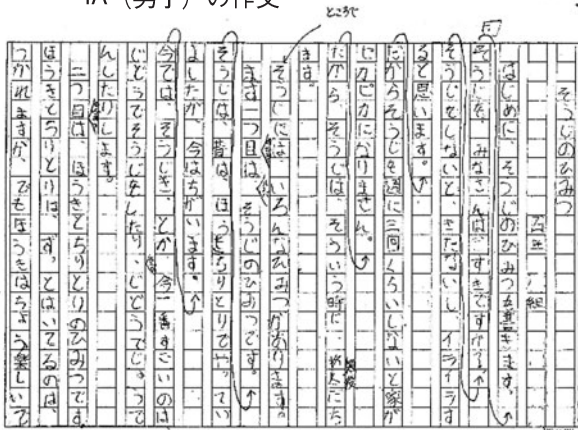 (男子)の作文
ところで
そうじのひみつ
五年 組
はじめに、そうじのひみつを書きます。
そうじを、みなさんは、すきですか。
そうじをしないと、きたないし、イライラす
ると思います。
だからそうじを週に三回くらいしないと家が
ピカピカになりません。
だから、そうじは、そういう時に
ます。
そうじには、いろんなひみつがあります。
まず一つ目は、そうじのひみつです。
そうじは、昔は、ほうきちりとりでやってい
ましたが、今はちがいます。
今では、そうじき、とか、今一番すごいのは
じどうでそうじをしたり、じどうで
んしたりします。
二つ目は、ほうきとちりとりのひみつです
ほうきとちりとりは、ずっとはいてるのは、
つかれますが、でもほうきはちょう楽しいで